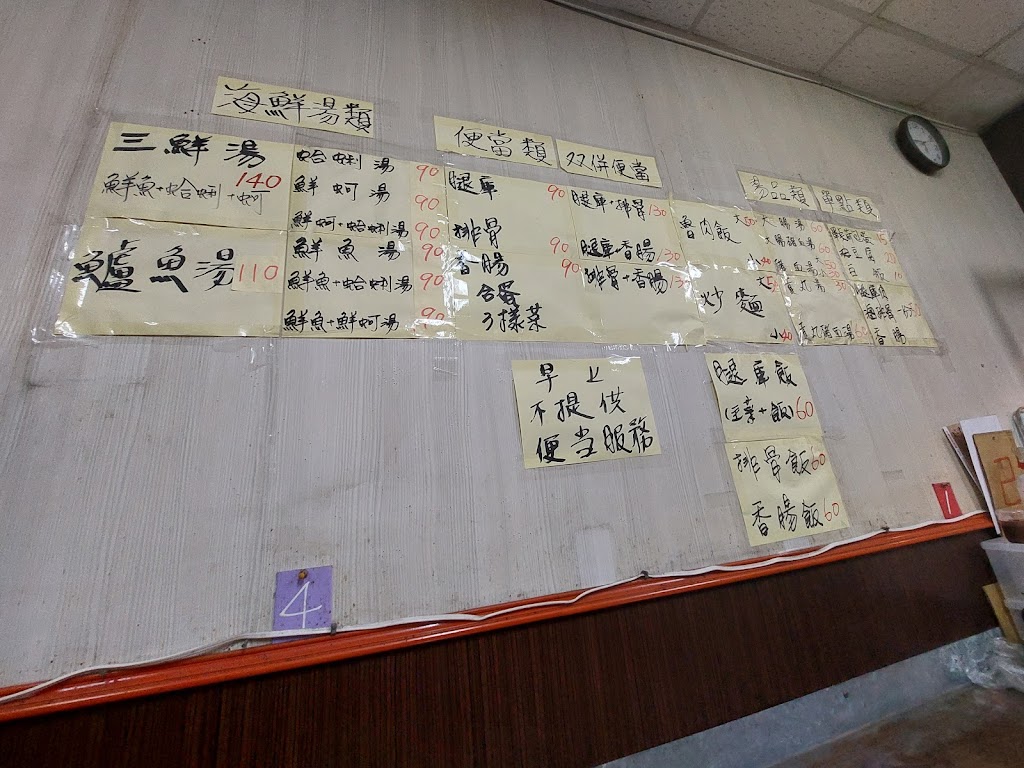 海鮮湯類
三鮮湯
140
鮮魚+蛤蜊+蚵
鱸魚湯 110
蛤蜊湯 90
鮮蚵湯 90
鮮蚵+蛤蜊湯 90
鮮魚湯 90
鮮魚+蛤蜊湯 90
鮮魚+鮮蚵湯 90
便當類
腿庫 90
排骨 90
香腸 90
含蛋
3樣菜
双併便當
腿庫+排骨 130
腿庫+香腸 130
排骨+香腸 130
魯肉飯
炒麵
小40
湯品類
大腸湯 60
60
單點類
15
白飯 10
香腸
早上
不提供
便当服務
腿庫飯
(主菜+飯) 60
排骨飯 60
香腸飯 60
4
1